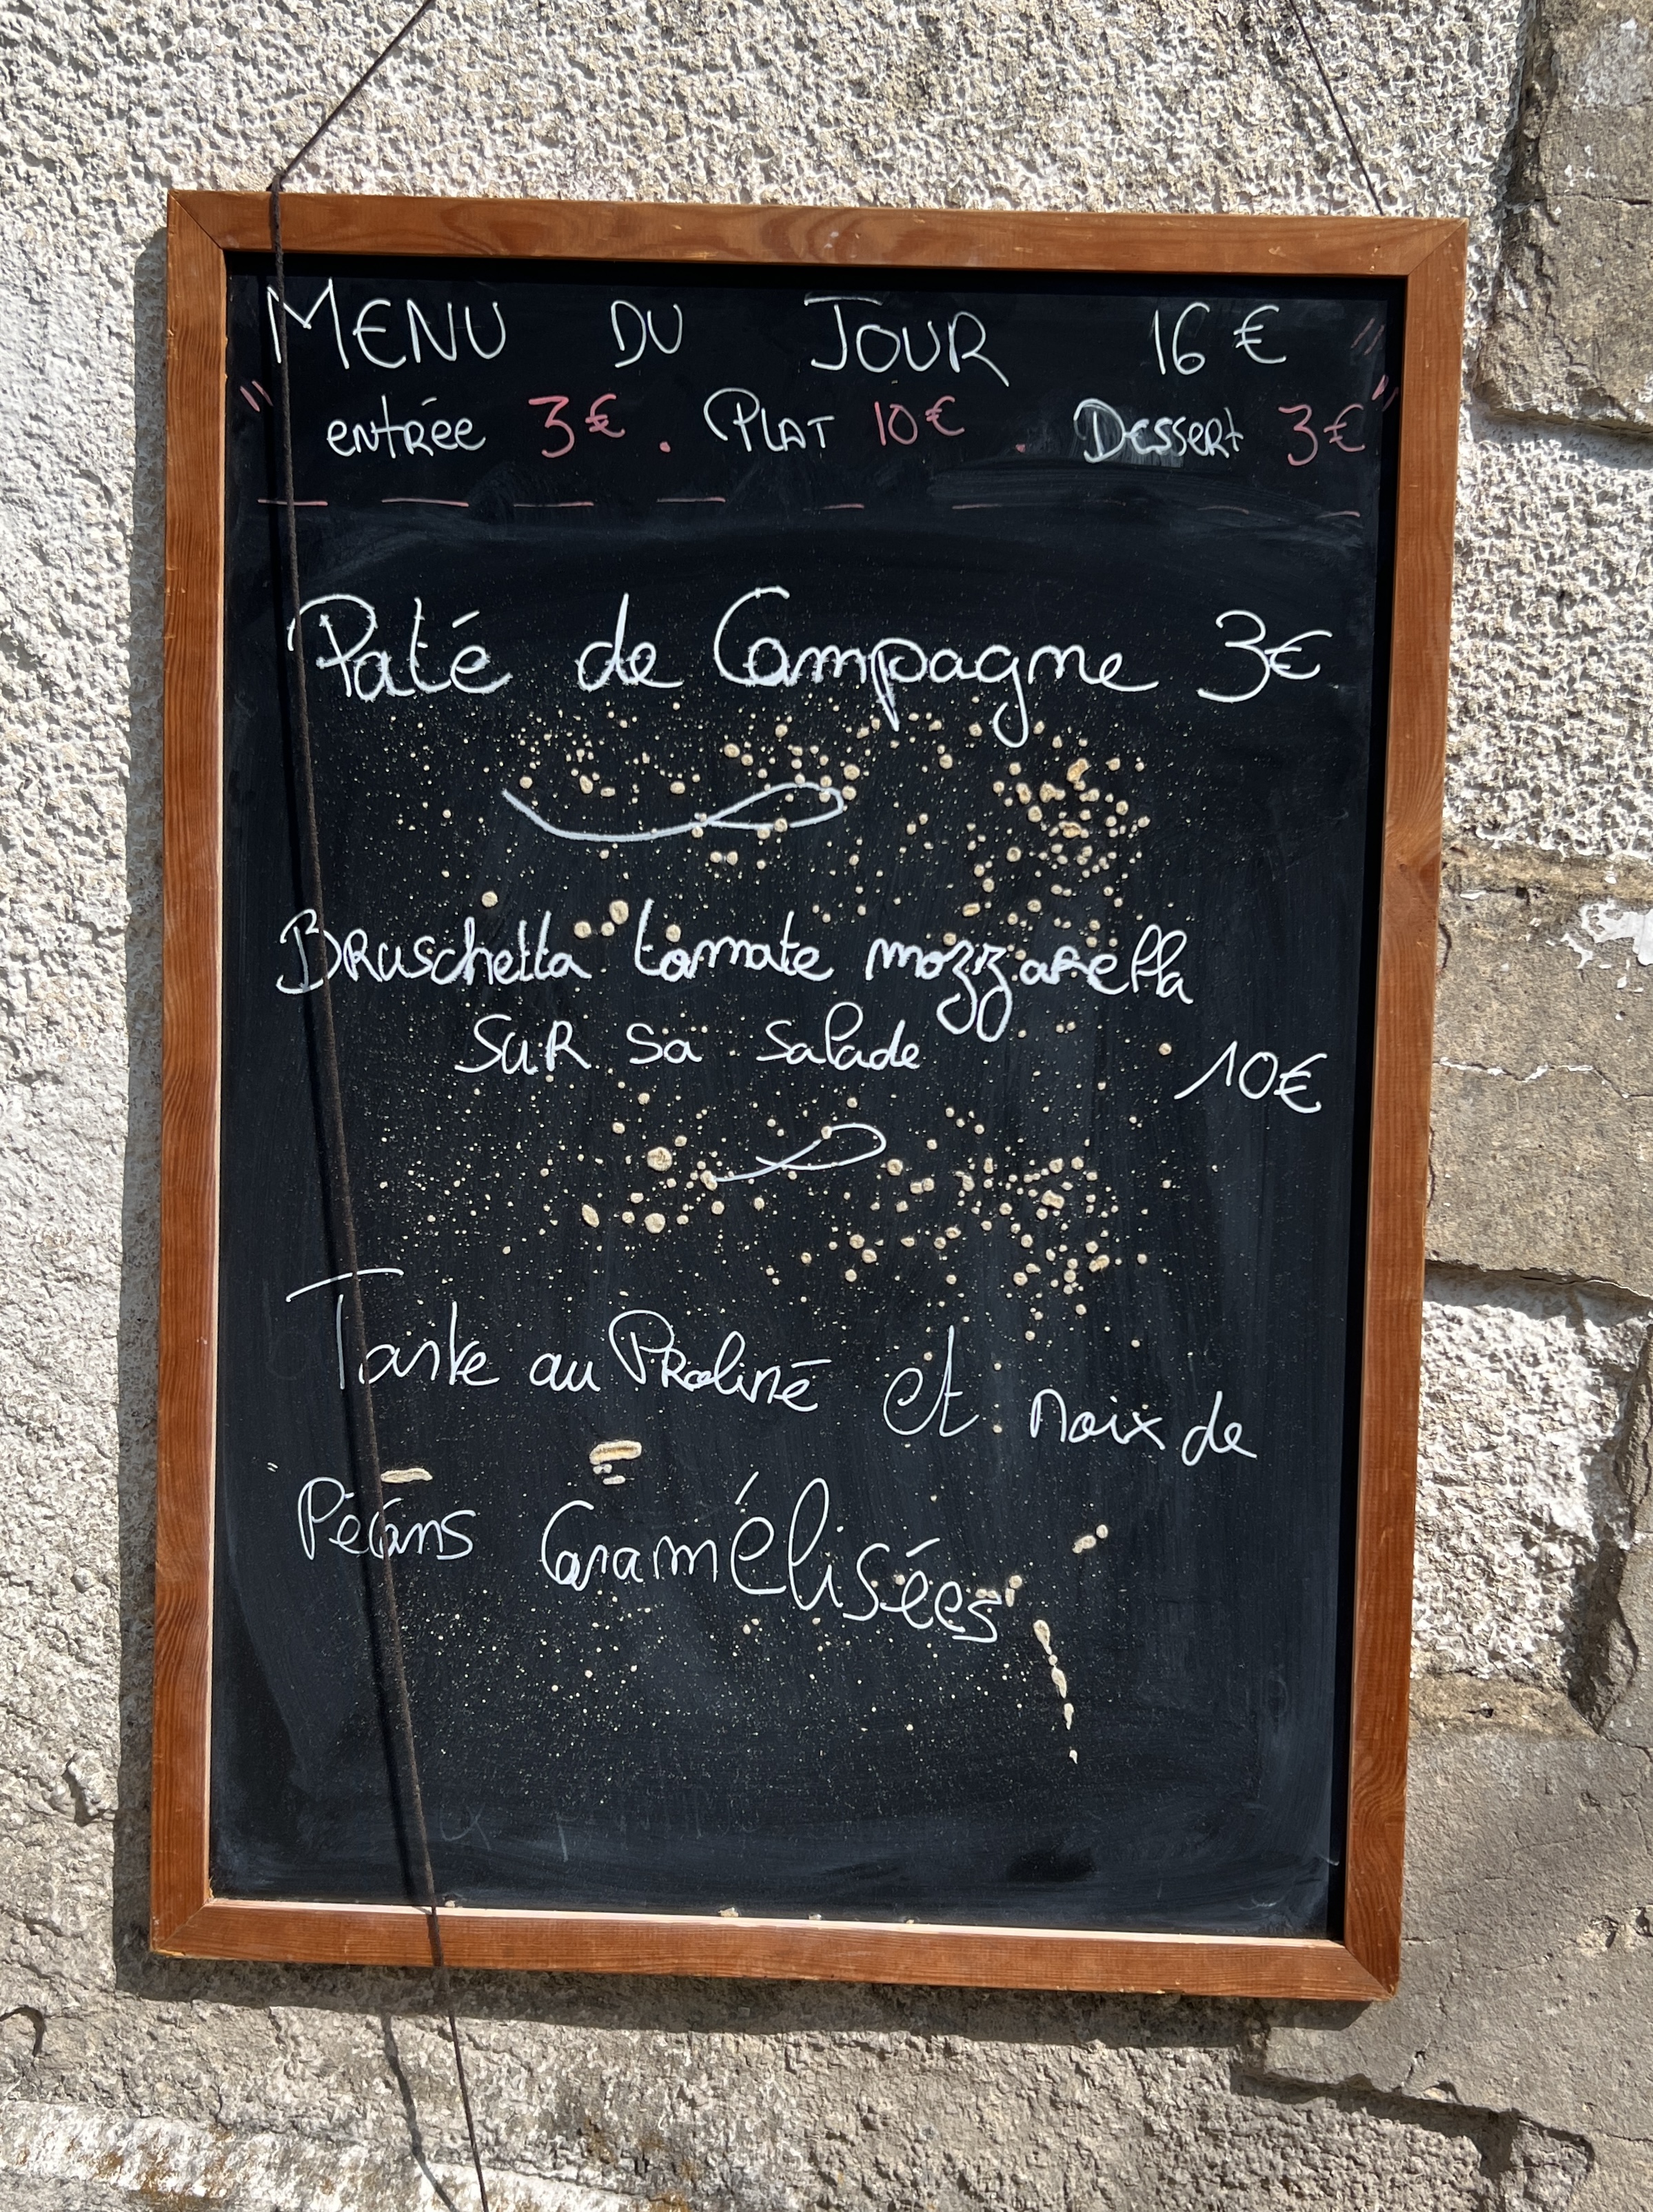 MENU DU JOUR 16 €
" entrée 3€ . PLAT 10€ . Dessert 3€ "
Paté de Campagne 3€
Bruschetta tomate mozzarella
SUR sa salade
10€
Tarte au Praliné et noix de
Pécans Caramélisées